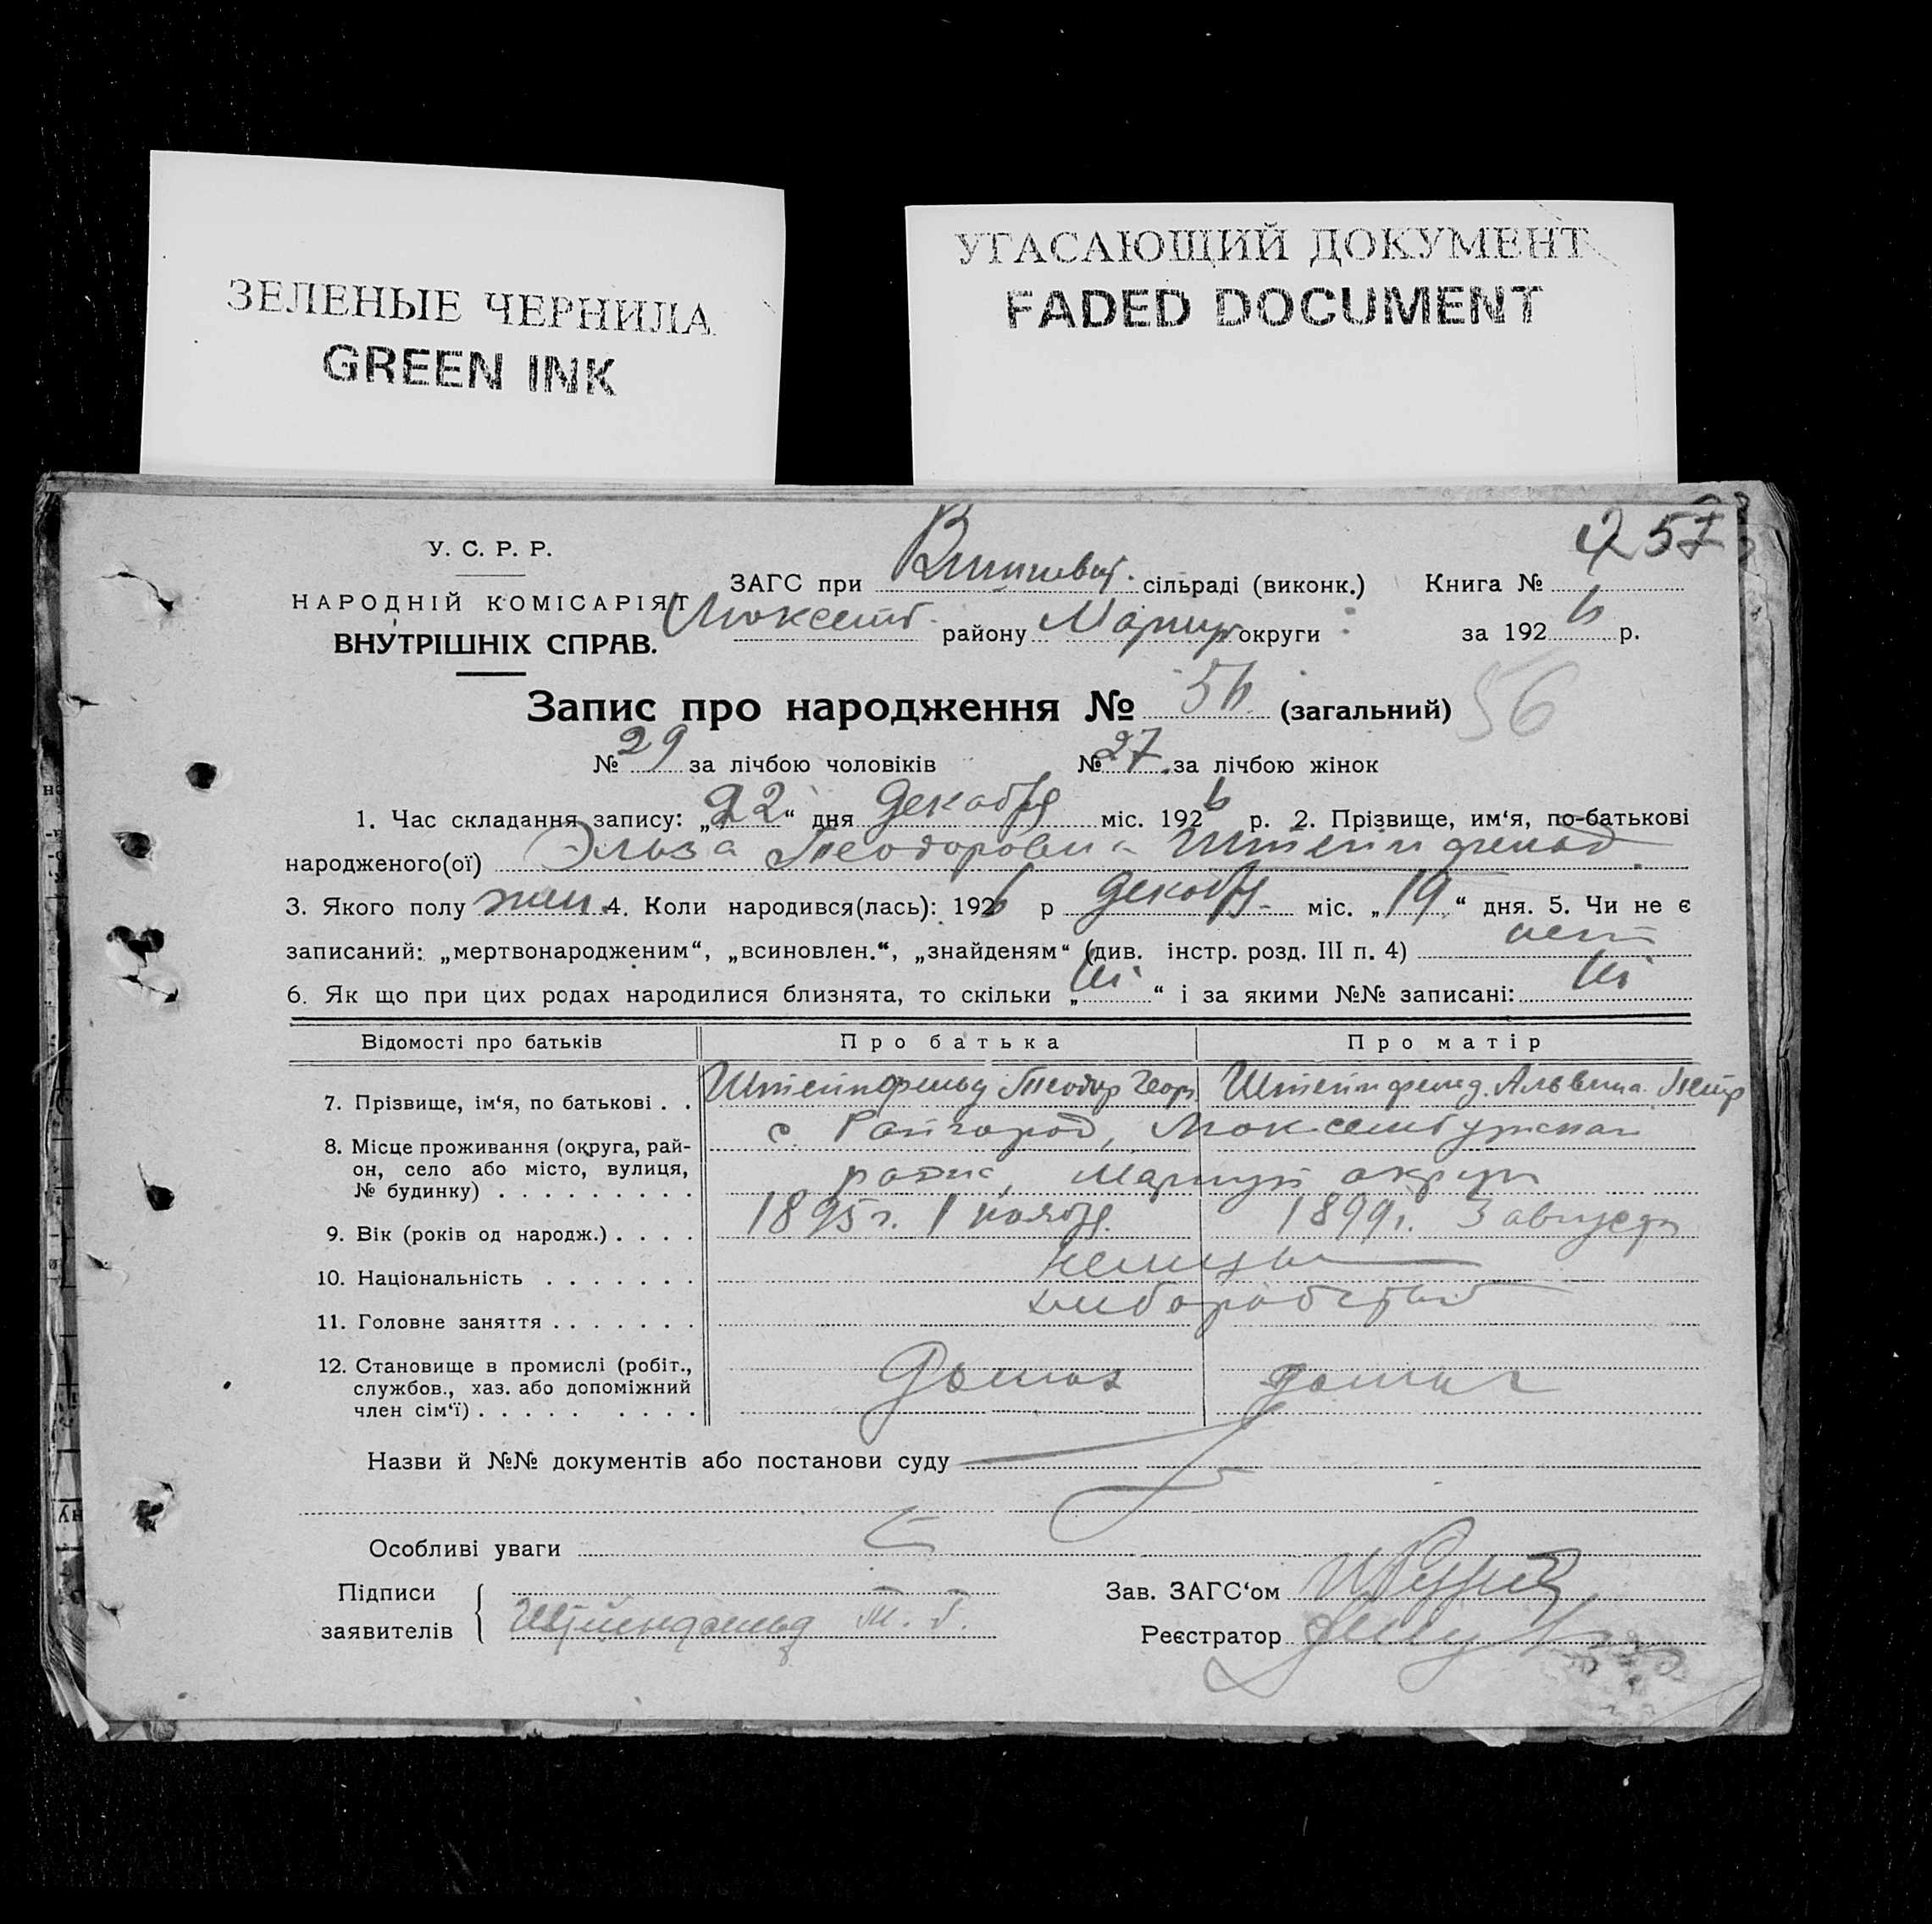 ЗЕЛЕНЫЕ ЧЕРНИЛА
GREEN INK
УГАСАЮЩИЙ ДОКУМЕНТ
FADED DOCUMENT
257
У. С. Р. Р.
НАРОДНІЙ КОМІСАРІЯТ
ВНУТРІШНІХ СПРАВ.
ЗАГС при сільраді (виконк.) Книга №
Люксемб. району Мариуп округи за 1926 р.
Запис про народження № 56 (загальний) 56
№ 29 за лічбою чоловіків № 27 за лічбою жінок
1. Час складання запису: „22“ дня декабря міс. 1926 р. 2. Прізвище, им‘я, по-батькові
народженого(ої) Эльза Теодоровна Штейнфельд
3. Якого полу жен. 4. Коли народився(лась): 1926 р декабря міс. „19“ дня. 5. Чи не є
записаний: „мертвонародженим“, „всиновлен.“, „знайденям“ (див. інстр. розд. III п. 4) нет
6. Як що при цих родах народилися близнята, то скільки „ “ і за якими №№ записані:
Відомості про батьків Про батька Про матір
7. Прізвище, ім‘я, по батькові . . Штейнфельд Теодор Георг Штейнфельд Альвина Петр
8. Місце проживання (округа, рай-
он, село або місто, вулиця,
№ будинку) . . . . . . . . .
с. Райгород, Люксембургская
района, Мариуп округи
9. Вік (років од народж.) . . . . 1895 г. 1 ноября 1899 г. 3 августа
10. Національність . . . . . . . немцы
11. Головне заняття . . . . . . . хлебороб
12. Становище в промислі (робіт.,
службов., хаз. або допоміжний
член сім‘ї) . . . . . . . . .
Назви й №№ документів або постанови суду
Особливі уваги
Підписи
заявителів
Штейнфельд Т. Г.
Зав. ЗАГС‘ом
Реєстратор